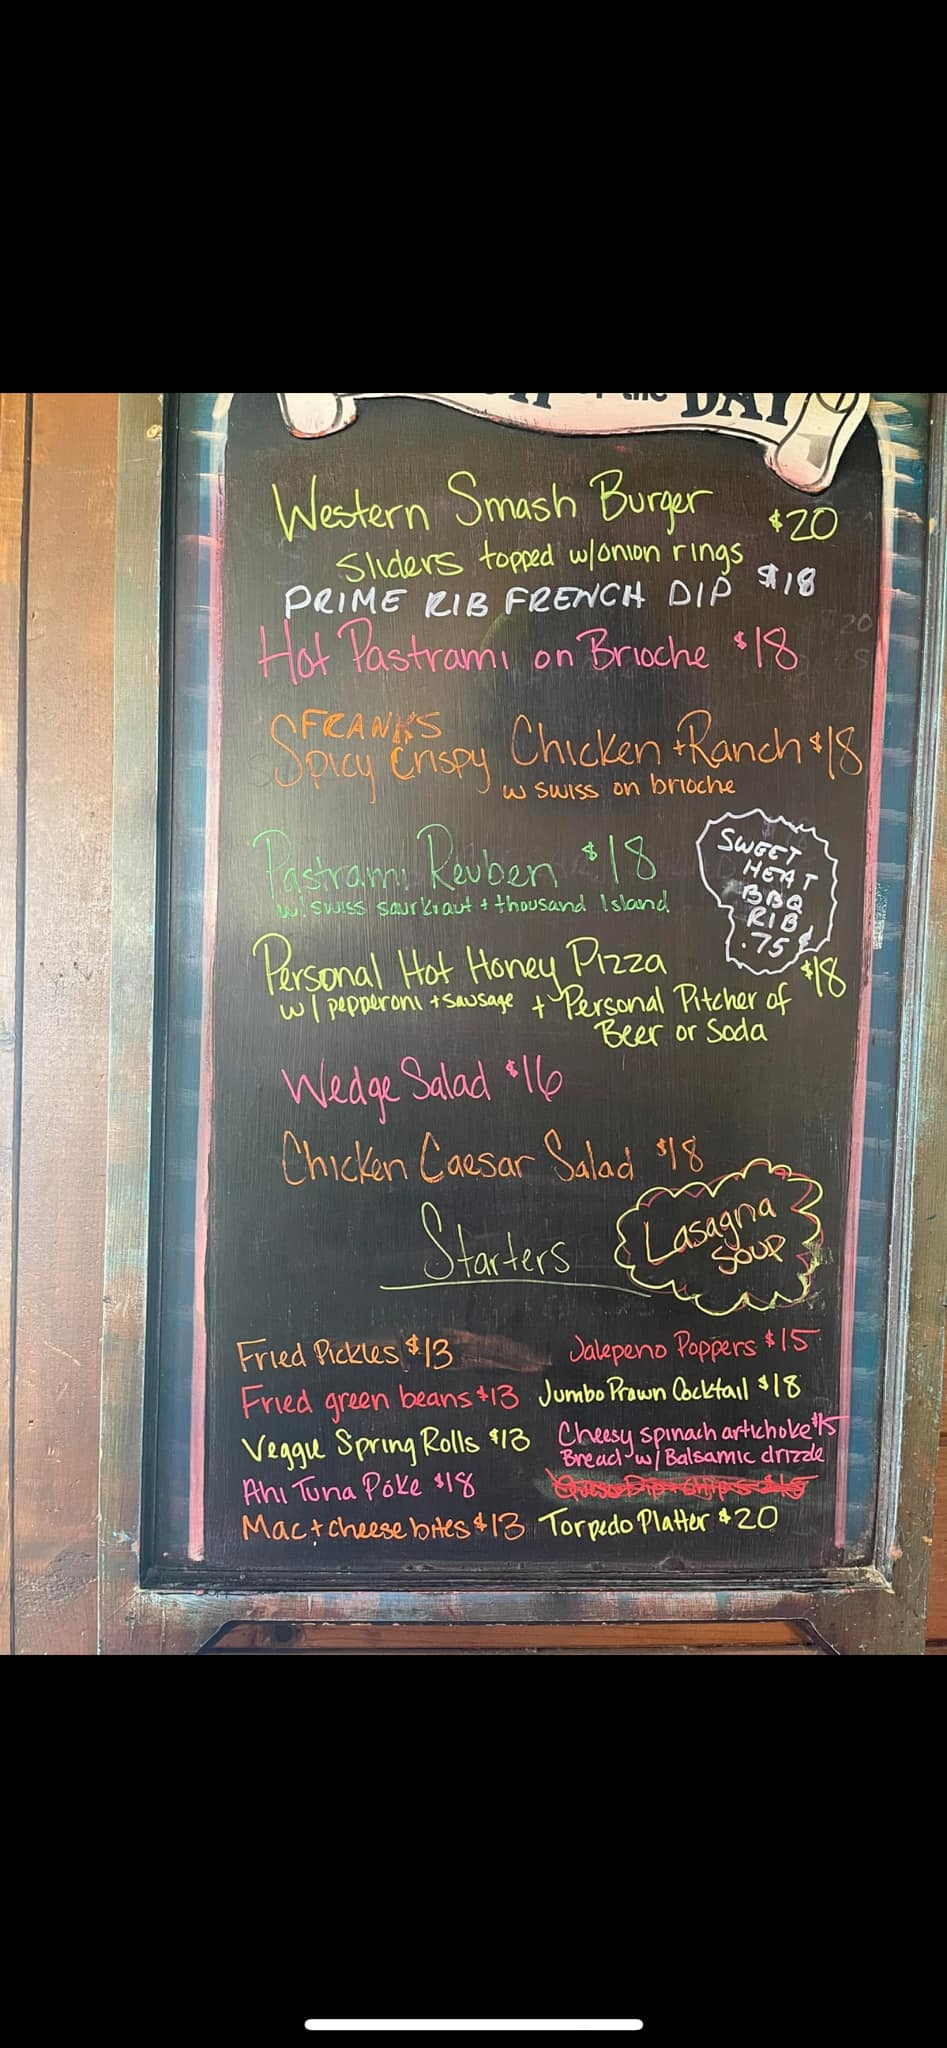 of the DAY
Western Smash Burger $20
Sliders topped w/onion rings
PRIME RIB FRENCH DIP $18
Hot Pastrami on Brioche $18
FRANKS
Spicy Crispy Chicken + Ranch $18
w swiss on brioche
Pastrami Reuben $18
w/ swiss saurkraut + thousand Island
SWEET
HEAT
BBQ
RIB
.75¢
Personal Hot Honey Pizza $18
w/ pepperoni + sausage + Personal Pitcher of
Beer or Soda
Wedge Salad $16
Chicken Caesar Salad $18
Starters
Lasagna
SOUP
Fried Pickles $13
Jalepeno Poppers $15
Fried green beans $13
Jumbo Prawn Cocktail $18
Veggie Spring Rolls $13
Cheesy spinach artichoke $15
Bread w/ Balsamic drizzle
Ahi Tuna Poke $18
Mac + cheese bites $13
Torpedo Platter $20